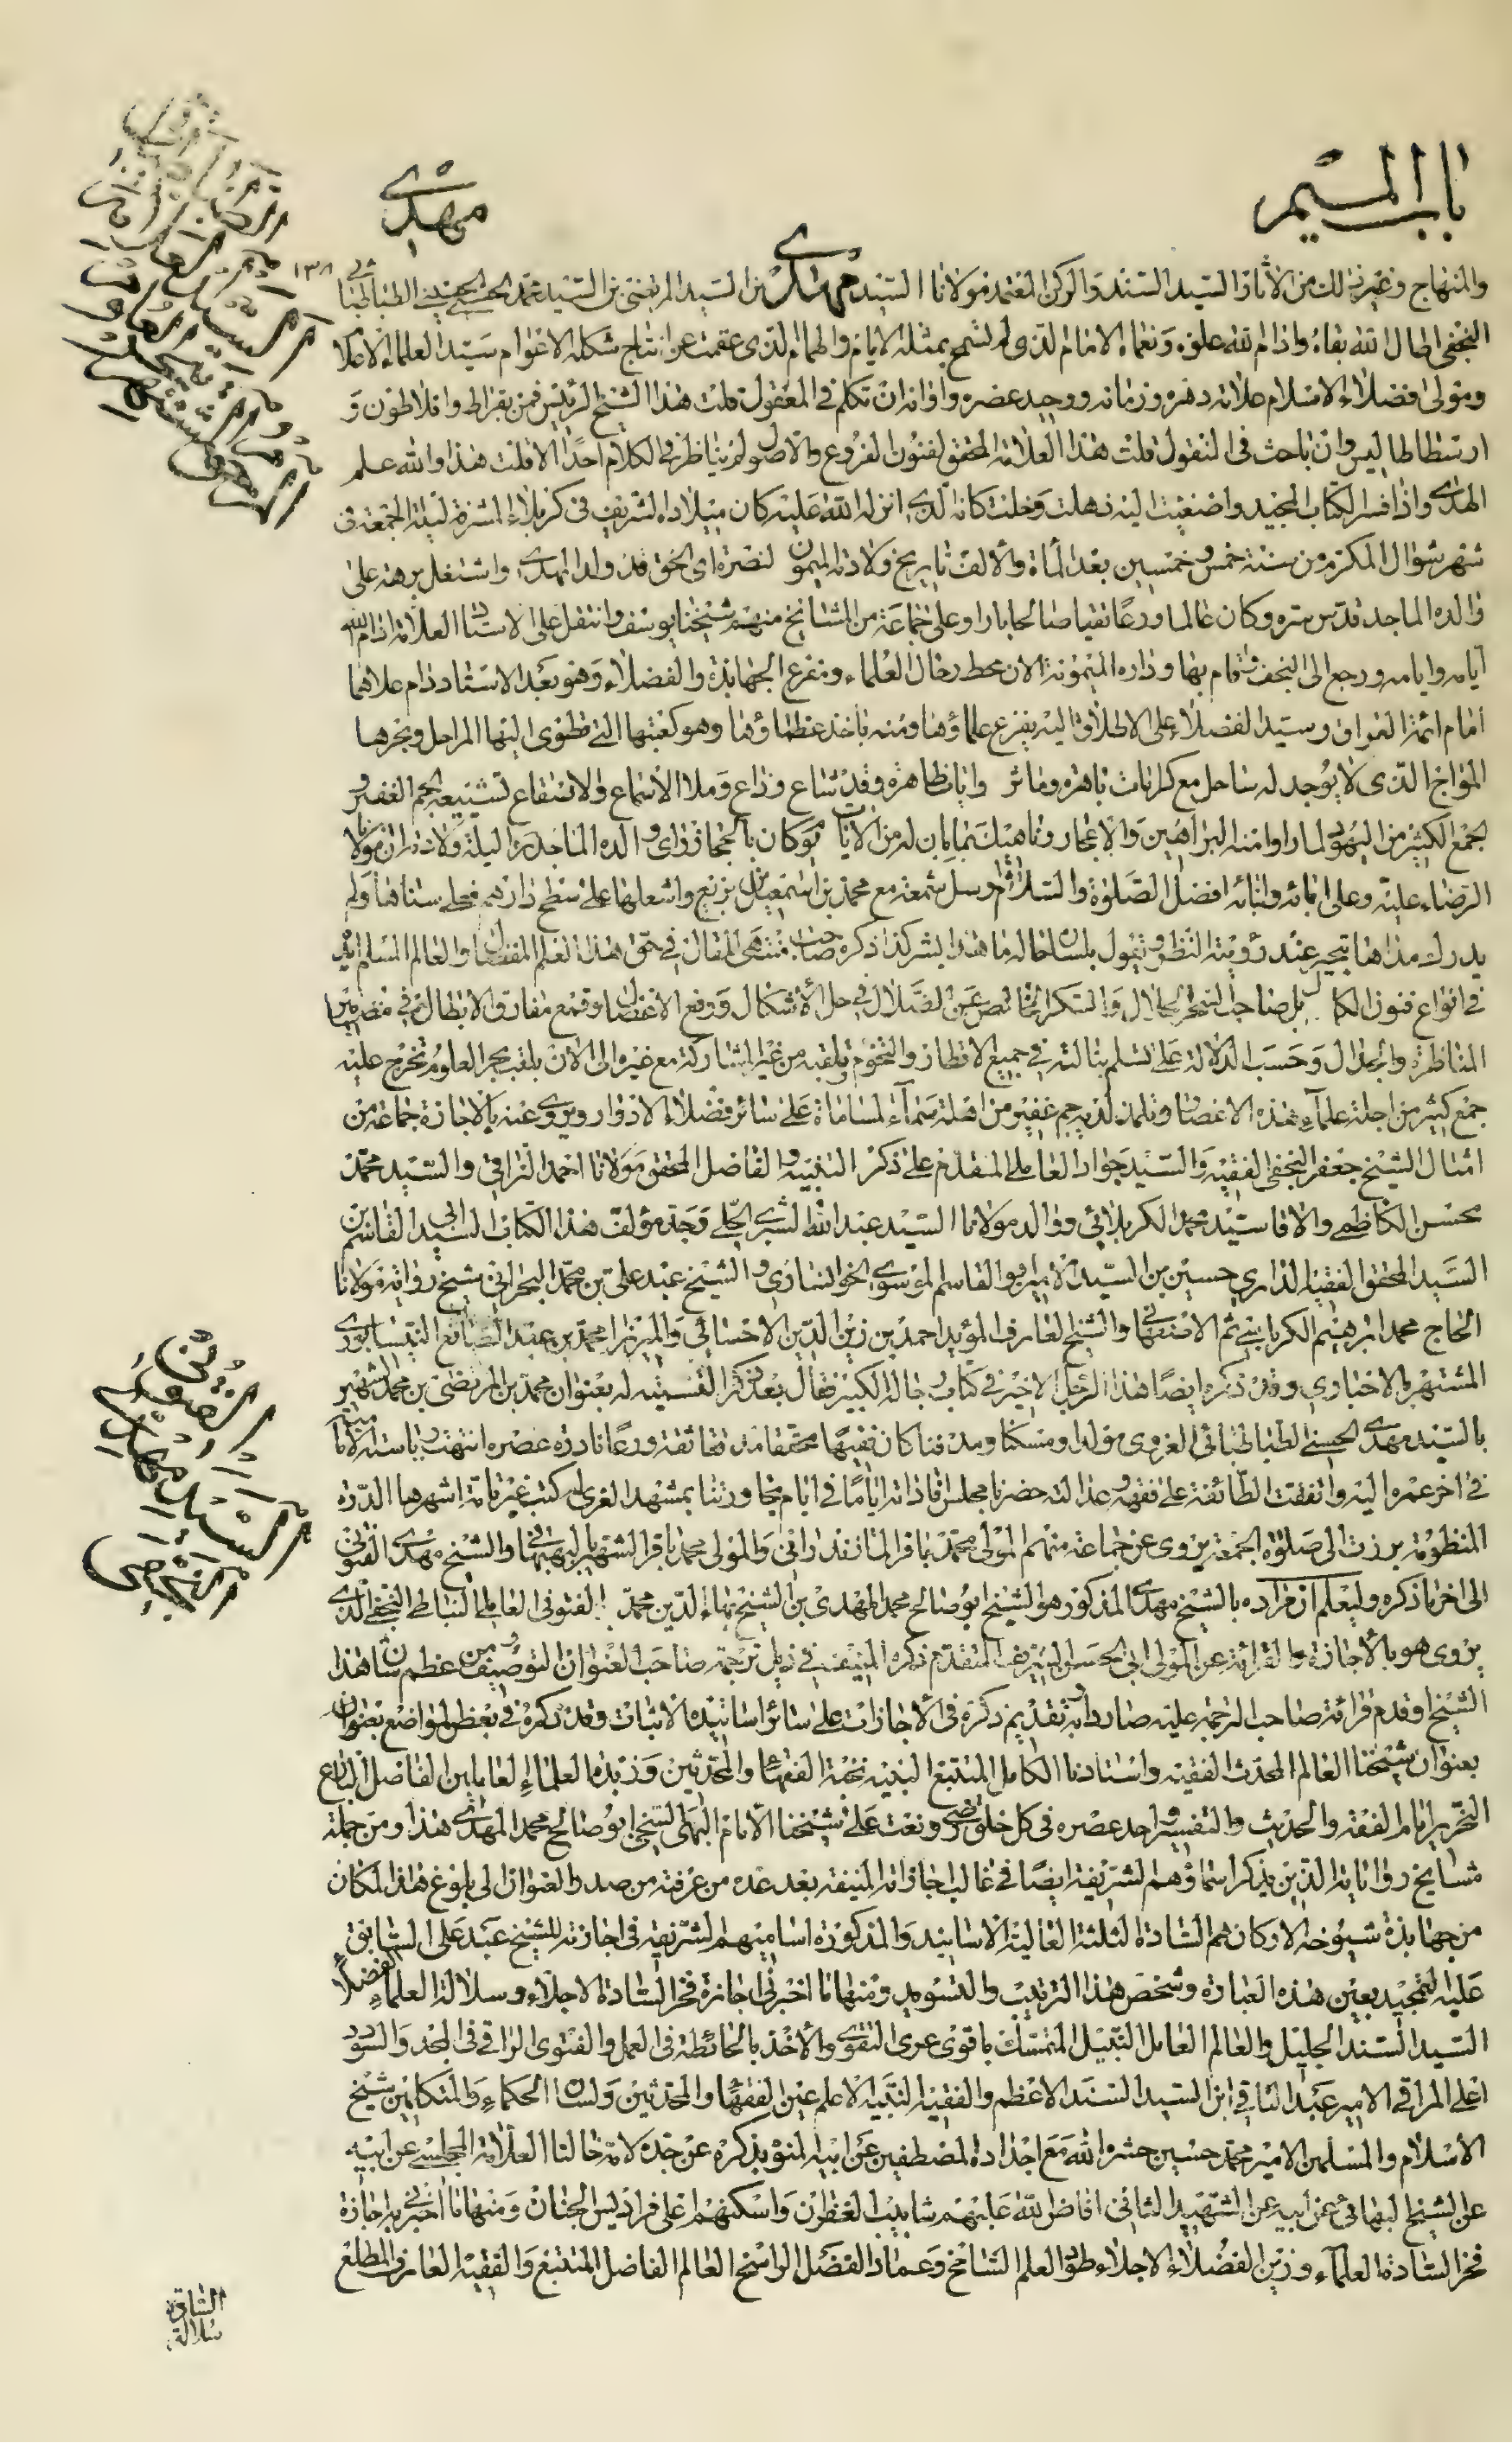 باب الميم
مهدي
١٣٨
والمنهاج وغير ذلك من الأثار السيد السند والركن المعتمد مولانا السيد مهدي بن السيد المرتضى بن السيد محمد الحسني الحسيني الطباطبائي
النجفي اطال الله بقاه وادام الله علوه ونعماه الامام الذي لم تسمح بمثله الايام والهمام الذي عقمت عن انتاج شكله الاعوام سيد العلماء الاعلام
ومولى فضلاء الاسلام علامة دهره وزمانه ووحيد عصره واوانه ان تكلم في المعقول قلت هذا الشيخ الرئيس فمن بقراط وافلاطون و
ارسطاطاليس وان باحث في المنقول قلت هذا العلامة المحقق لفنون الفروع والاصول لم يناظر في الكلام احدا الا قلت هذا والله علم
الهدى واذا فسر الكتاب المجيد واصغيت اليه ذهلت وخلت كانه الذي انزله الله عليه كان ميلاده الشريف في كربلاء المشرفة ليلة الجمعة في
شهر شوال المكرم من سنة خمس وخمسين بعد المأة والألف تاريخ ولادته الميمون لنصرة اي الحق قد ولد المهدي واشتغل برهة على
والده الماجد قدس سره وكان عالما ورعا تقيا صالحا بارا وعلى جماعة من المشايخ منهم شيخنا يوسف وانتقل على الاستاد العلامة ادام الله
ايامه وايامه ورجع الى النجف فقام بها وداره الميمونة الان محط رحال العلماء ومفزع الجهابذة والفضلاء وهو بعد الاستاد دام علاهما
امام ائمة العراق وسيد الفضلاء على الاطلاق اليه يفزع علماؤها ومنه ياخذ عظماؤها وهو كعبتها التي تطوى اليها المراحل وبحرها
المواج الذي لا يوجد له ساحل مع كرامات باهرة وماثر وايات ظاهرة وقد شاع وذاع وملأ الأسماع والاصقاع تشيعه الجم الغفير و
الجمع الكثير من اليهود لما راوا منه البراهين والاعجاز وناهيك بما بان له من الايات يوم كان بالحجاز وراى والده الماجد ره ليلة ولادته ان مولانا
الرضا عليه وعلى ابائه وابنائه افضل الصلوة والسلام ارسل شمعة مع محمد بن اسمعيل بن بزيع واشعلها على سطح دارهم فعلى سناها ولم
يدرك مداها يتحير عند رؤيته النظر ويقول بلسان حاله ما هذا بشر كذا ذكره صاحب منتهى المقال في حق هذا العلم المفضال والعالم المسلم اليه
في انواع فنون الكمال بل صاحب السحر الحلال والسكر الخالص عن الضلال في حل الأشكال ورفع الاعضال وقمع مفارق الابطال في مضمارين
المناظرة والجدال وحسب الدلالة على تسلم نبالته في جميع الاقطار والتخوم تلقبه من غير المشاركة مع غيره الى الان بلقب بحر العلوم تخرج عليه
جمع كثير من اجلة علماء هذه الاعصار وتلمذ لديه جم غفير من اهلة سماء المساماة على سائر فضلاء الادوار ويروى عنه بالاجازة جماعة من
امثال الشيخ جعفر النجفي الفقيه والسيد جواد العاملي المتقدم على ذكر التنبيه والفاضل المحقق مولانا احمد النراقي والسيد محمد
محسن الكاظمي والاقا سيد محمد الكربلائي ووالد مولانا السيد عبد الله الشبري الحلي وجد مؤلف هذا الكتاب السيد ابي القاسم بن
السيد المحقق الفقيه الداري حسين بن السيد الامير ابو القاسم الموسوي الخوانساري والشيخ عبد علي بن محمد البحراني شيخ رواية مولانا
الحاج محمد ابرهيم الكرباسي ثم الاصفهاني والشيخ العارف المؤيد احمد بن زين الدين الاحسائي والميرزا محمد بن عبد الصانع النيسابوري
المشتهر بالاخباري وقد ذكره ايضا هذا الرجل الاخير في كتاب رجاله الكبير فقال بعد ذكر القسيته له بعنوان محمد بن المرتضى بن محمد الشهير
بالسيد مهدي الحسني الطباطبائي الغروي مولدا ومسكنا ومدفنا كان فقيها محققا مدققا ثقة ورعا نادرة عصره انتهت رياسة الامامية
في اخر عمره اليه واتفقت الطائفة على فقهه وعدالته حضرنا مجلس افاداته اياما في ايام مجاورتنا بمشهد الغري له كتب غير تامة اشهرها الدرة
المنظومة برزت الى صلوة الجمعة يروى عن جماعة منهم المولى محمد باقر المازندراني والمولى محمد باقر الشهير بالبهبهاني والشيخ مهدي الفتوني
الى اخر ما ذكره وليعلم ان مراده بالشيخ مهدي المذكور هو الشيخ ابو صالح محمد المهدي بن الشيخ بهاء الدين محمد الفتوني العاملي النباطي النجفي الذي
يروى هو بالأجازة والقرائة عن المولى ابي الحسن الشريف المتقدم ذكره المنيف في ذيل ترجمة صاحب العنوان لتوصيف من عظم شان هذا
الشيخ وقدم قرائة صاحب الترجمة عليه صار دابه تقديم ذكره في الأجازات على سائر اسانيده الاثبات وقد ذكره في بعض المواضع بعنوان
بعنوان شيخنا العالم المحدث الفقيه واستادنا الكامل المتتبع النبيه نخبة الفقهاء والمحدثين وزبدة العلماء العاملين الفاضل البارع
النحرير امام الفقه والحديث والتفسير واحد عصره في كل خلق رضي ونعت علي شيخنا الامام البهي السخي ابو صالح محمد المهدي هذا ومن جملة
مشايخ رواياته الذين يذكر اسماؤهم الشريفة ايضا في غالب اجازاته المنيفة بعد عده من عرفته من صدر العنوان الى بلوغ هذا المكان
من جهابذة شيوخه الاركان هم السادة الثلثة العالية الاسانيد والمذكورة اساميهم الشريفة في اجازته للشيخ عبد علي السابق
عليه التمجيد بعين هذه العبارة وشخص هذا الترتيب والتسويد ومنها ما اخبرني اجازة فخر السادة الاجلاء وسلالة العلماء الفضلاء
السيد السند الجليل والعالم العامل النبيل المتمسك باقوى عرى التقوى والأخذ بالحائطة في العمل والفتوى الراقي في المجد والسؤدد
اعلى المراقي الامير عبد الباقي ابن السيد السند الاعظم والفقيه النبيه الاعلم عين الفقهاء والمحدثين ولسان الحكماء والمتكلمين شيخ
الأسلام والمسلمين الامير محمد حسين حشره الله مع اجداده المصطفين عن ابيه المنوه بذكره عن جده لامه خالنا العلامة المجلسي عن ابيه
عن الشيخ البهائي عن ابيه عن الشهيد الثاني افاض الله عليهم شابيب الغفران واسكنهم اعلى فراديس الجنان ومنها ما اخبرني به اجازة
فخر السادة العلماء وزين الفضلاء الاجلاء طود العلم الشامخ وعماد الفضل الراسخ العالم الفاضل المتتبع والفقيه العارف المطلع
الفتوني
السيد مهدي
السادة
سلالة